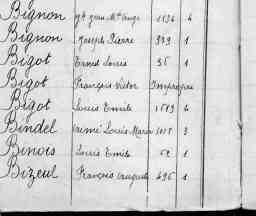 Bignon 1136 4
Bignon Joseph Pierre 939 1
Bigot Ernest Louis 35 1
Bigot François Victor Impropre
Bigot Louis Emile 1513 4
Bindel Aimé Louis Marie 1018 3
Binois Louis Emile 52 1
Bizeul François Auguste 495 1